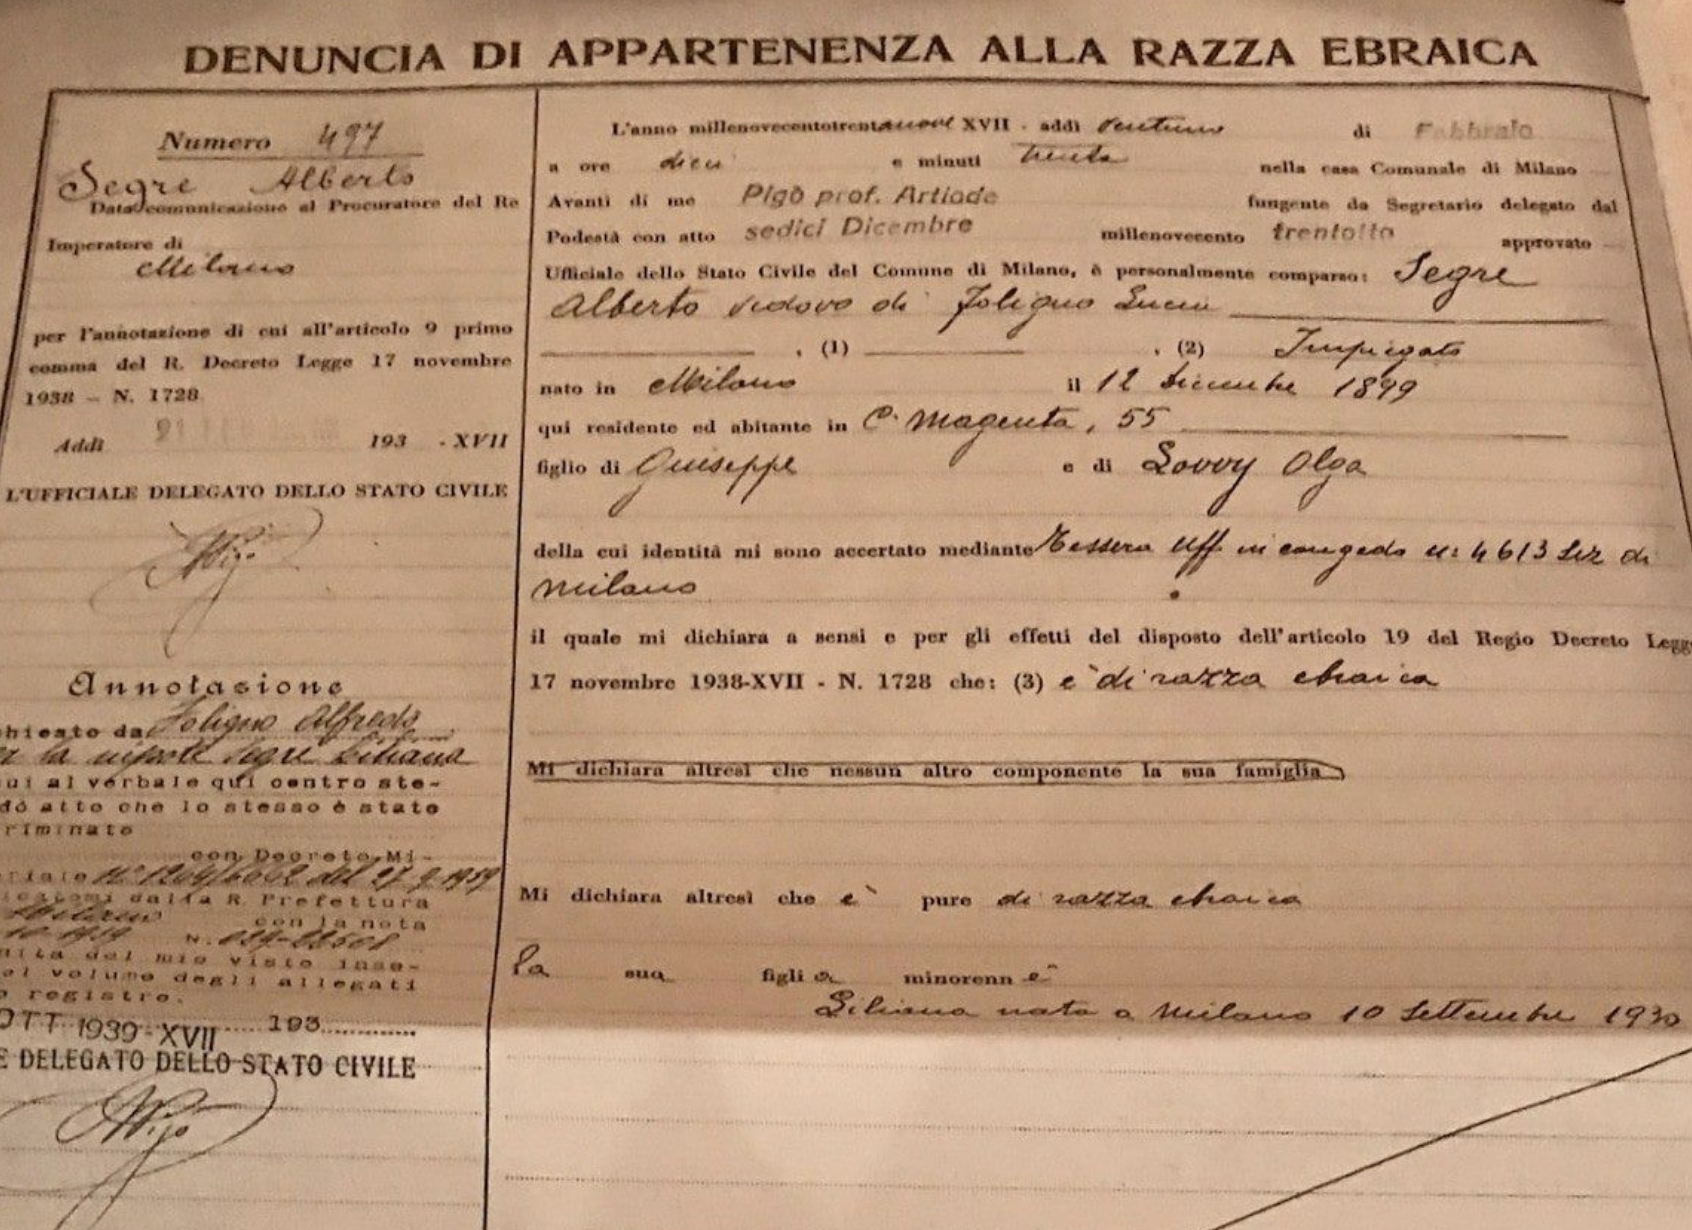 DENUNCIA DI APPARTENENZA ALLA RAZZA EBRAICA
Numero 497
Segre Alberto
Data comunicazione al Procuratore del Re
Imperatore di
Milano
per l'annotazione di cui all'articolo 9 primo
comma del R. Decreto Legge 17 novembre
1938 - N. 1728
Addì 21 193 - XVII
L'UFFICIALE DELEGATO DELLO STATO CIVILE
Annotazione
hiesto da Foligno Alfredo
la nipote Segre Liliana
ui al verbale qui contro ste-
dò atto che lo stesso è stato
riminato
con Decreto Mi-
riale N° del 27.9.1939
dalla R. Prefettura
Milano con la nota
10.1939 N.
nita del mio visto inse-
el volume degli allegati
o registro.
OTT 1939-XVII 193
E DELEGATO DELLO STATO CIVILE
L'anno millenovecentotrentanove XVII - addì ventuno di Febbraio
a ore dieci e minuti trenta nella casa Comunale di Milano
Avanti di me Pigò prof. Artiade fungente da Segretario delegato dal
Podestà con atto sedici Dicembre millenovecento trentotto approvato
Ufficiale dello Stato Civile del Comune di Milano, è personalmente comparso: Segre
Alberto vedovo di Foligno Lucia
, (1) , (2) Impiegato
nato in Milano il 12 dicembre 1899
qui residente ed abitante in C. Magenta, 55
figlio di Giuseppe e di Lovvy Olga
della cui identità mi sono accertato mediante Tessera Uff in congedo n: 4613 Sez di
Milano
il quale mi dichiara a sensi e per gli effetti del disposto dell'articolo 19 del Regio Decreto Legge
17 novembre 1938-XVII - N. 1728 che: (3) è di razza ebraica
Mi dichiara altresì che nessun altro componente la sua famiglia
Mi dichiara altresì che è pure di razza ebraica
la sua figlia minorenne
Liliana nata a Milano 10 Settembre 1930